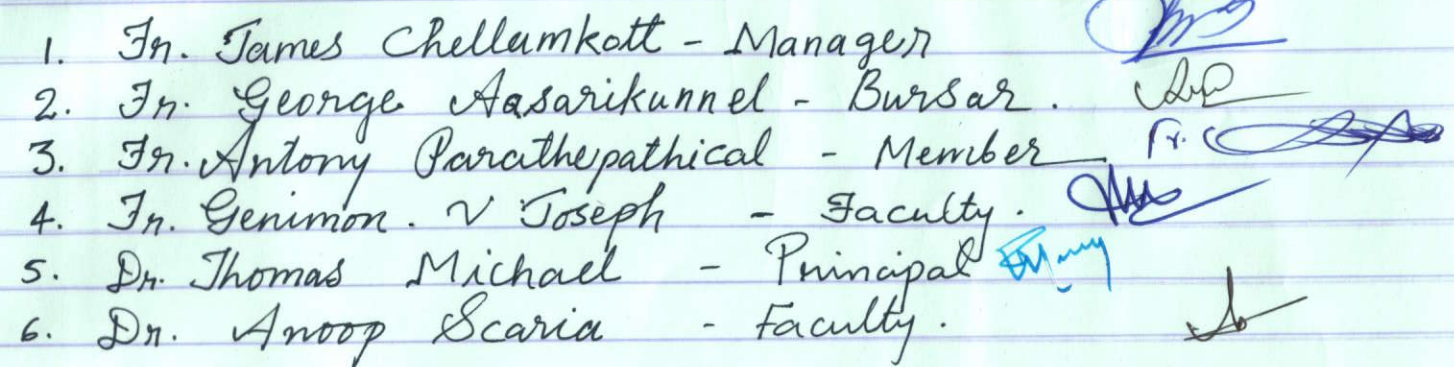 1. Fr. James Chellamkott - Manager
2. Fr. George Aasarikunnel - Bursar.
3. Fr. Antony Parathepathical - Member Fr.
4. Fr. Genimon. V Joseph - Faculty.
5. Dr. Thomas Michael - Principal
6. Dr. Anoop Scaria - Faculty.